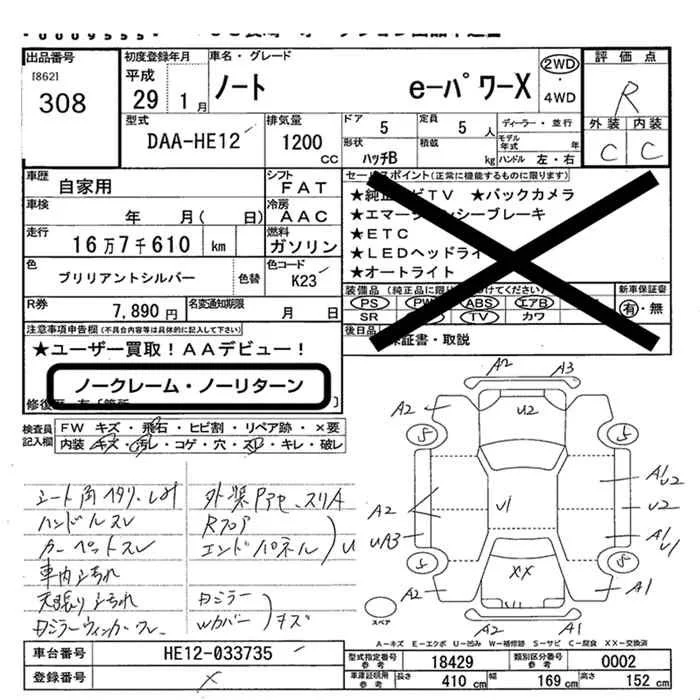 出品番号
[862]
308
初度登録年月
平成
29 1月
車名・グレード
ノート e-パワーX
2WD
・
4WD
評価点
R
外装 内装
C C
型式
DAA-HE12
排気量
1200
CC
ドア
5
定員
5人
ディーラー・並行
形状
ハッチB
積載
kg
モデル
年式 年
ハンドル 左・右
車歴
自家用
シフト
FAT
車検
年 月( 日)
冷房
AAC
走行
16万7千610 km
燃料
ガソリン
色
ブリリアントシルバー
色替
色コード
K23
R券
7,890円
名変通知期限
月 日
セールスポイント(正常に機能するものに限ります)
★純正 TV ★バックカメラ
★エマージ シーブレーキ
★ETC
★LEDヘッドライ
★オートライト
装備品(純正品に限り けてください)
新車保証書
PS PW ABS エアB
有・無
SR TV カワ
後日品
保証書・取説
注意事項申告欄(不具合内容等は具体的に記入して下さい)
★ユーザー買取!AAデビュー!
ノークレーム・ノーリターン
検査員
記入欄
FW キズ・飛石・ヒビ割・リペア跡・×要
内装・キズ・汚レ・コゲ・穴・スレ・キレ・破レ
シート角ヘタリ、しみ
ハンドルスレ
カーペットスレ
車内ヨゴれ
天張りヨゴれ
外装Pアセ、スリA
Rフロア
エンドパネル
U
Wカバー
キズ
A2 A3
A2 U2 A2
S S
A1
U2
A2 U1 U2
UA3 A1
U1
S S
A2 XX A1
A2 A1
スペア
A-キズ E-エクボ U-凹み W-補修跡 S-サビ C-腐食 XX-交換済
車台番号
HE12-033735
登録番号
型式指定番号
参考
18429
類別区分番号
参考
0002
車庫証明用
参考
長さ 410cm
幅 169cm
高さ 152cm